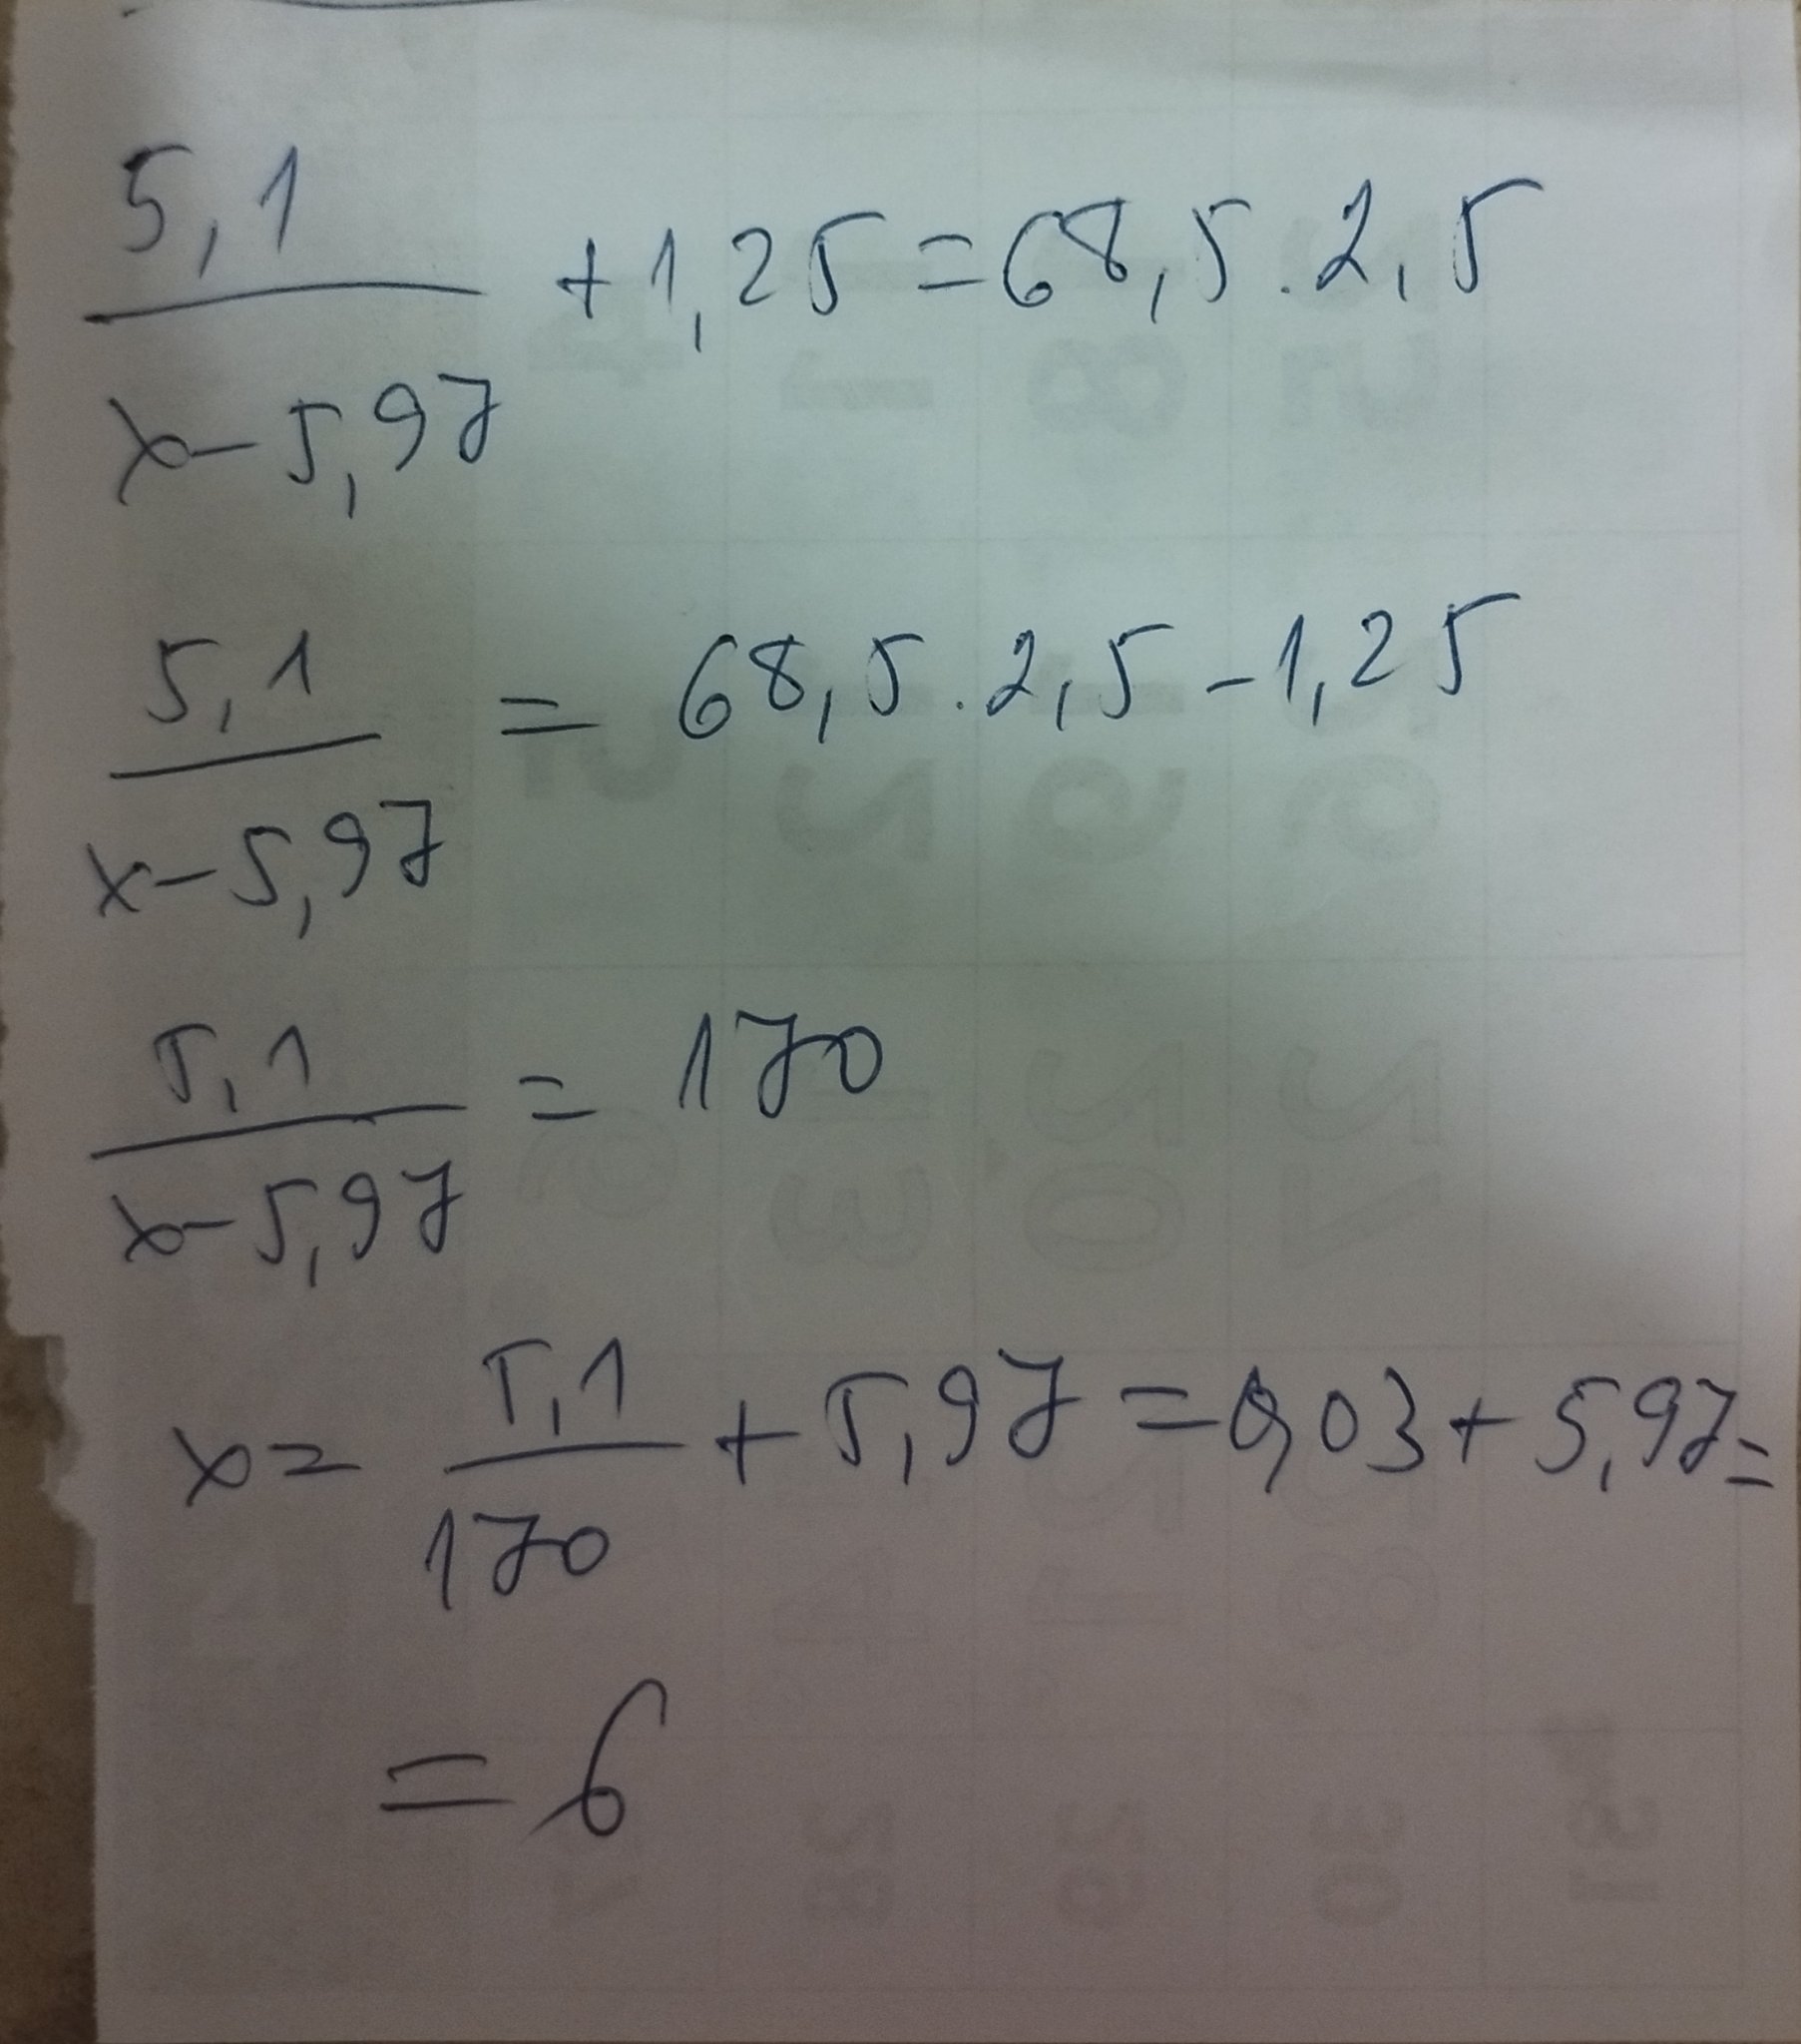 5,1/(x-5,97) +1,25=68,5.2,5
5,1/(x-5,97) = 68,5.2,5-1,25
5,1/(x-5,97) = 170
x= 5,1/170 +5,97=0,03+5,97=
=6